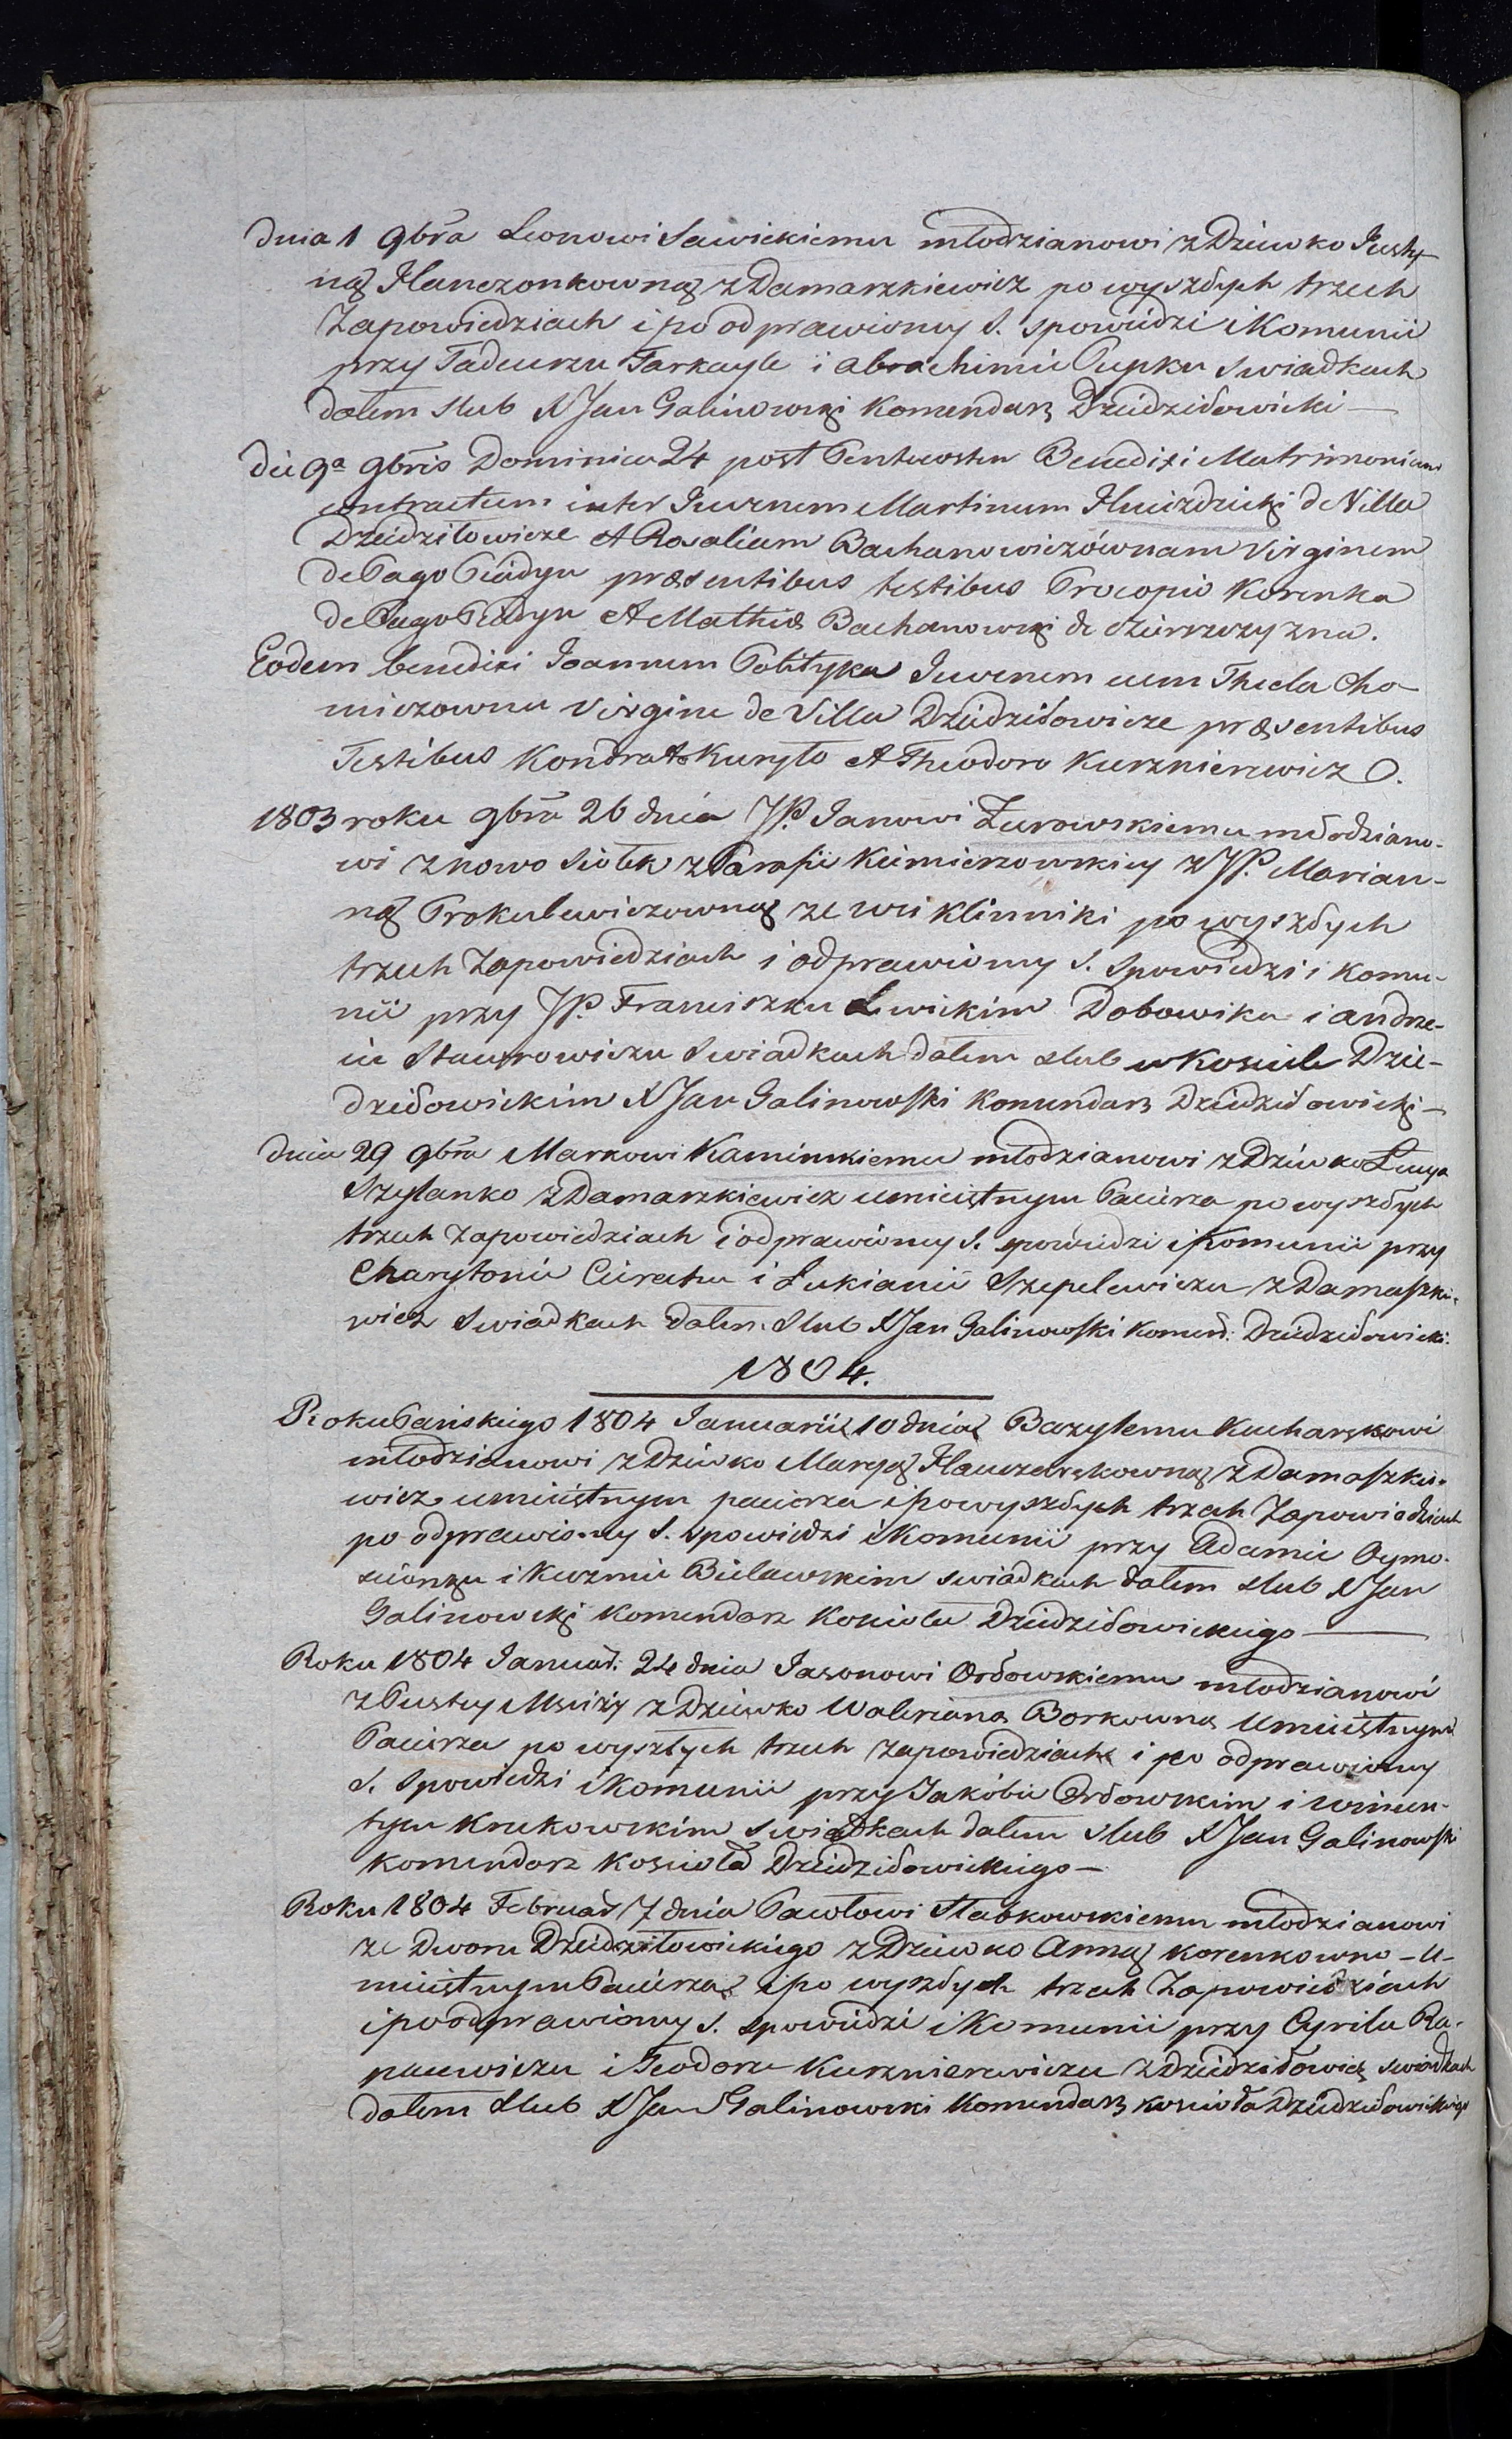 Dnia 1 9bra Leonowi Sawickiemu młodzianowi z Dziewko Justy-
ną Hanczonkowną z Damarzkiewicz po wyszłych trzech
Zapowiedziach i po odprawiony S. spowiedzi i Komunii
przy Tadeuszu Tarkayle i abrachimie Pupku Swiadkach
dałem Slub X Jan Galinowski Komendarz Dziedziłowicki —
die 9a 9bris Dominica 24 post Pentecosten Benedixi Matrimonium
contractum inter Juvenem Martinum Hniezdzicki de Villa
Dziedziłowicze et Rosaliam Bachanowiczównam Virginem
de Pago Pciadyn præsentibus testibus Procopio Korenka
de Pago et Mathia Bachanowski de
Eodem benedixi Joannem Polityka Juvenem cum Thecla Cho-
miczowna Virgine de Villa Dziedziłowicze præsentibus
Testibus Kondrat Kuryło et Theodoro Kusznierewicz
1803 roku 9bra 26 dnia JP. Janowi Żurowskiemu młodziano-
wi z nowo Siołek z Parafii Kiemierzowskiey z JP. Marian-
ną Prokulewiczowną ze wsi Klinniki po wyszłych
trzech Zapowiedziach i odprawiony S. Spowiedzi i Komu-
nii przy JP. Franciszku Lewickim Dobowiku i andrze-
iu Stawrowiczu Swiadkach dałem slub w Kosciele Dzie-
dziłowickim X Jan Galinowski Komendarz Dziedziłowicki —
dnia 29 9bra Markowi Kaminskiemu młodzianowi z Dziewko Łucyą
Szylanko z Damarzkiewicz umieiętnym Pacierza po wyszłych
trzech Zapowiedziach i odprawiony S. spowiedzi i Komunii przy
Charytonie Cieratu i Łukianie Szepelewiczu z Damaszkie-
wicz Swiadkach dałem Slub X Jan Galinowski Komend: Dziedziłowicki.
1804.
Roku Pańskiego 1804 Januarii 10 dnia Bazylemu Kucharskowi
młodzianowi z Dziewko Maryą z Damaszkie-
wicz umieiętnym pacierza i po wyszłych trzech Zapowiedziach
po odprawiony S. spowiedzi i Komunii przy Adamie Oymo-
i Kuzmie Bielawskim swiadkach dałem slub X Jan
Galinowski Komendarz Kosciola Dziedziłowickiego —
Roku 1804 Januar: 24 dnia Jasonowi Orłowskiemu młodzianowi
z Pustey Msciży z Dziewko Waleriana Borkowna Umieiętnym
Pacierza po wyszłych trzech zapowiedziach i po odprawiony
S. Spowiedzi i Komunii przy Jakóbie Orłowskim i Wincen-
tym Krukowskim Swiadkach dałem slub X Jan Galinowski
Komendarz Kosciola Dziedziłowickiego —
Roku 1804 Februar 7 dnia Pawłowi Słabkowskiemu młodzianowi
ze Dworu Dziedziłowickiego z Dziewko Anną Korenkowno - U-
mieiętnym Pacierza i po wyszłych trzech Zapowiedziach
i po odprawiony S. spowiedzi i Komunii przy Cyrilu Ra-
pacewiczu i Teodorze Kusznierewiczu z Dziedziłowicz swiadkach
dałem Slub X Jan Galinowski Komendarz kosciola Dziedziłowickiego